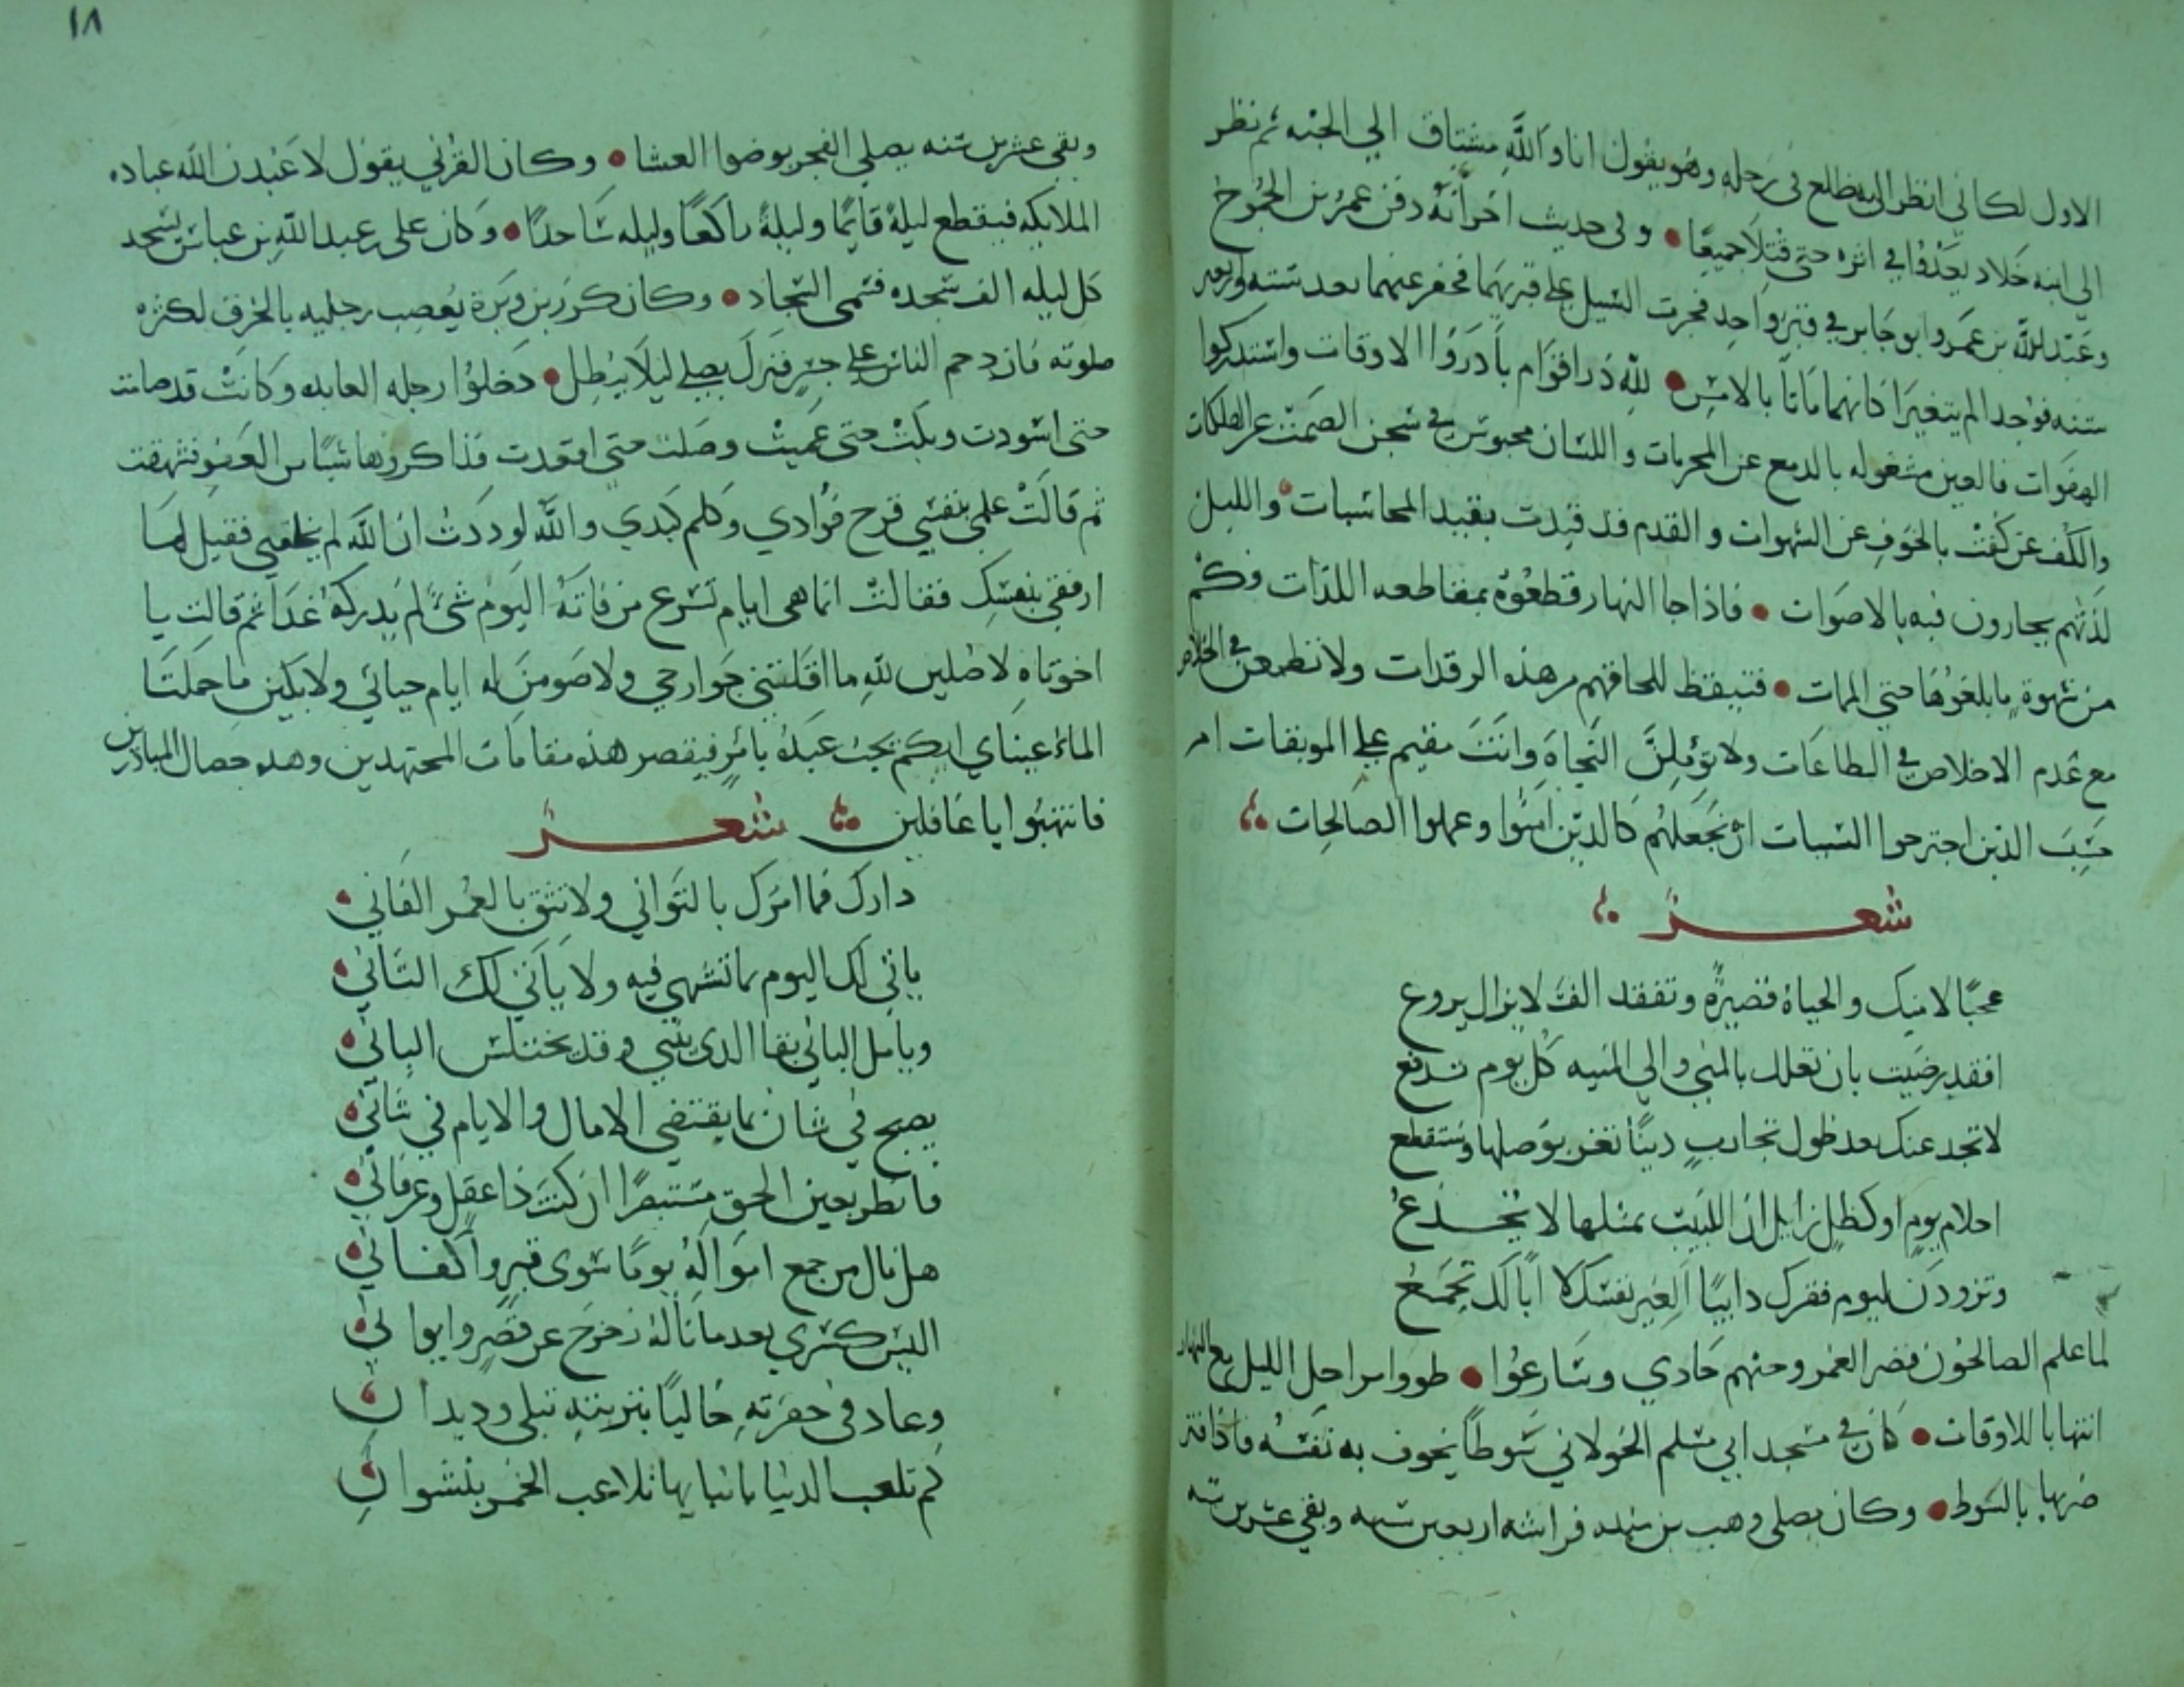 الاول لكاني انظر الى ظلع في رجله وهو يقول انا والله مشتاق الي الجنه ثم نظر
الي ابنه خلاد يعدوا في اثره حتى قتلا جميعا • وفي حديث اخر انه دفن عمرو بن الجموح
وعبد الله بن عمرو ابو جابر في قبر واحد فجرت السيل على قبريهما فحفر عنهما بعد ستة واربعين
سنه فوجدا لم يتغيرا كانهما ماتا بالامس • لله در اقوام بادروا الاوقات واستدركوا
الهفوات فالعين مشغوله بالدمع عن المحرمات واللسان محبوس في سجن الصمت عن الهلكات
والكف عن كفت بالخوف عن الشهوات والقدم قد قيدت بقيد المحاسبات • والليل
لذتهم يجارون فيه بالاصوات • فاذا جا النهار قطعوه بمقاطعه اللذات فكم
من شهوة ما بلغوها حتي الممات • فتيقظ للحاقهم من هذه الرقدات ولا تطمعن في الخلاص
مع عدم الاخلاص في الطاعات ولا توملن النجاة وانت مقيم على الموبقات ام
حسب الذين اجترحوا السيات ان نجعلهم كالذين امنوا وعملوا الصالحات
شعر
عجبا لامنك والحياة قصيرة وتفقد الف لا يزال يروع
افقد رضيت بان تعلل بالمني والي المنيه كل يوم تدفع
لا تجد عنك بعد طول تجارب دنيا تغر بوصلها وستقطع
احلام يوم او كظل زايل ان اللبيب بمثلها لا يخدع
وتزودن ليوم فقرك دايبا الغير نفسك لا ابا لك تجمع
لما علم الصالحون قصر العمر وحثهم حادي وسارعوا • طووا مراحل الليل مع النهار
انتهابا للاوقات • كان في مسجد ابي مسلم الخولاني سوطا يخوف به نفسه فاذا فتر
ضربها بالسوط • وكان يصلي وهب بن منبه فراشه اربعين سنه وبقي عشرين سنه
١٨
وبقي عشرين سنه يصلي الفجر بوضوا العشا • وكان القرني يقول لاعبدن الله عباده
الملايكه فيقطع ليلة قايما وليلة راكعا وليله ساجدا • وكان علي بن عبد الله بن عباس يسجد
كل ليله الف سجده فسمى السجاد • وكان كرز بن وبرة يعصب رجليه بالخرق لكثره
صلوته فازدحم الناس على جسر فنزل يصلي ليلا يبطل • دخلوا رجله العابده وكانت قد صامت
حتى اسودت وبكت حتى عميت وصلت حتى اقعدت فذاكروها شيا من العفو فشهقت
ثم قالت علمي بنفسي قرح فوادي وكلم كبدي والله لوددت ان الله لم يخلقني فقيل لها
ارفقي بنفسك فقالت انما هي ايام تسرع من فاته اليوم شئ لم يدركه غدا ثم قالت يا
اخوتاه لاصلين لله ما اقلتني جوارحي ولاصومن له ايام حياتي ولابكين ما حملتا
الماء عيناي ايكم يحب عبده بامر فيقصر هذه مقامات المجتهدين وهذه خصال المبادرين
فانتبهوا يا غافلين شعر
دارك فما امرك بالتواني ولا تثق بالعمر الفاني •
ياتي لك اليوم بما تشتهي فيه ولا ياتي لك الثاني •
ويامل الباني بقا الذي يبني وقد يختلس الباني •
يصبح في شان بما يقتضي الامال والايام في شاني •
فانظر بعين الحق مستبصرا ان كنت ذا عقل وعرفاني •
هل نال من جمع امواله يوما سوى قبر واكفاني •
اليس كسري بعد ما ناله زحزح عن قصر وايواني •
وعاد في حفرته خاليا بتربته تبلي وديدان •
كم تلعب الدنيا بابنايها تلاعب الخمر بنشوان •